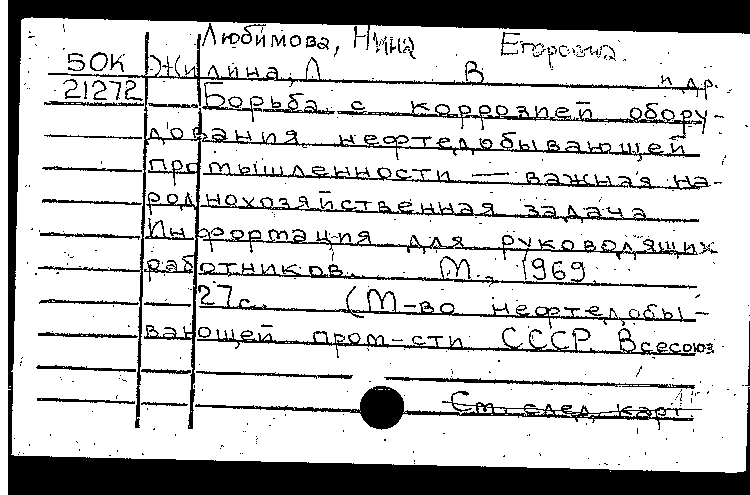 Любимова, Нина Егоровна.
50К Жилина, Л В и др.
21272 Борьба с коррозией обору-
дования нефтедобывающей
промышленности — важная на-
роднохозяйственная задача
Информация для руководящих
работников. М., 1969.
27с. (М-во нефтедобы-
вающей пром-сти СССР. Всесоюз
См. след. карт